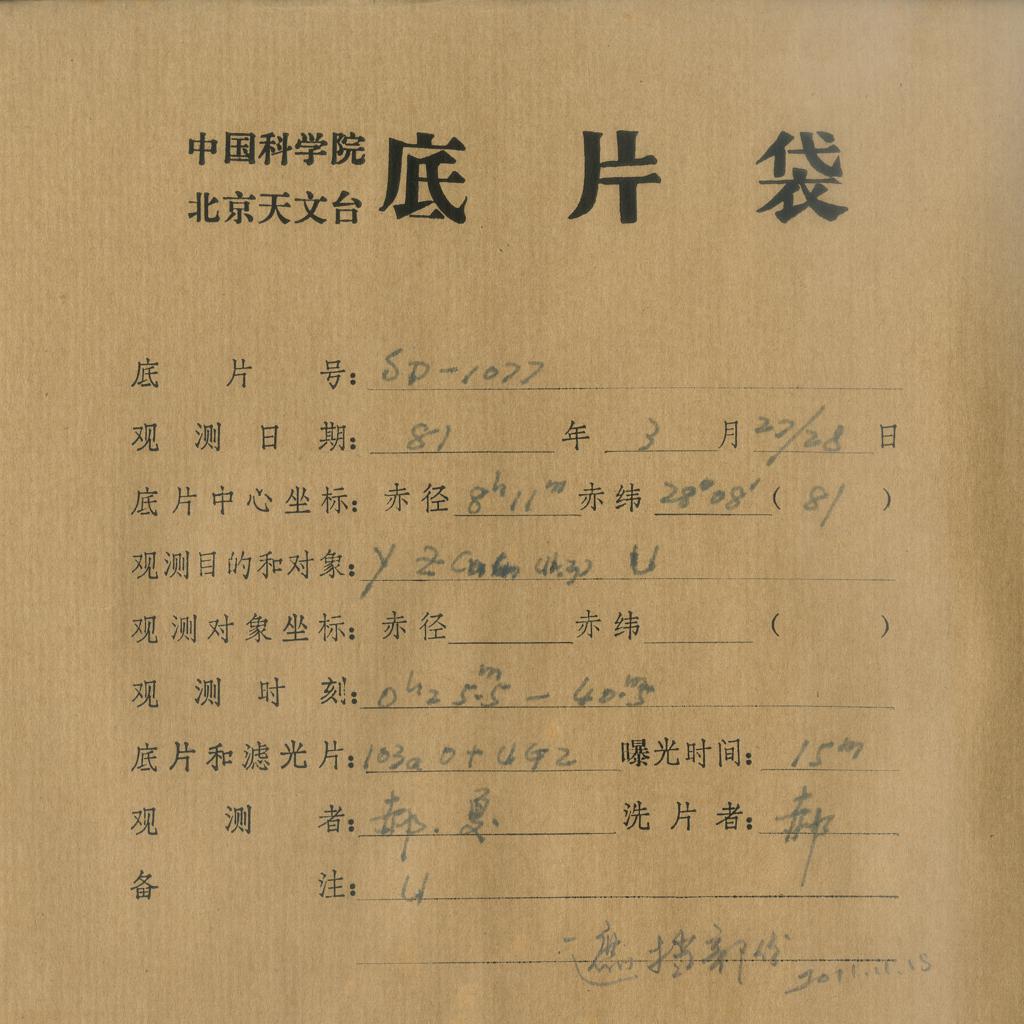 中国科学院
北京天文台
底片袋
底片号: SD-1077
观测日期: 81 年 3 月 27/28 日
底片中心坐标: 赤径 8h11m 赤纬 28°08′ ( 81 )
观测目的和对象: Y Z U
观测对象坐标: 赤径 赤纬 ( )
观测时刻: 0h25m.5 — 40m.5
底片和滤光片: 103a O+UG2 曝光时间: 15m
观测者: 郝.夏 洗片者: 郝
备注: U
遮挡部份
2011.11.15